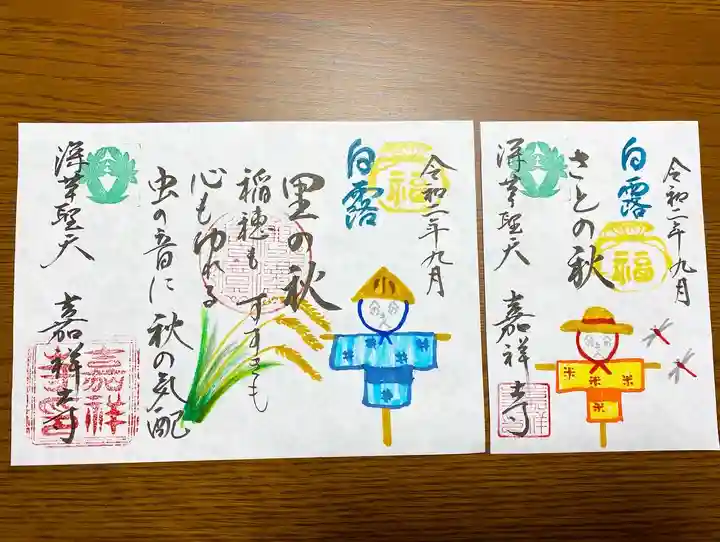 令和二年九月
白露
福
里の秋
稲穂も すすきも
心もゆれる
虫の音に 秋の気配
深草聖天 嘉祥寺
小
米
嘉祥寺
令和二年九月
白露
福
さとの秋
深草聖天 嘉祥寺
米 米 米
米
嘉祥寺